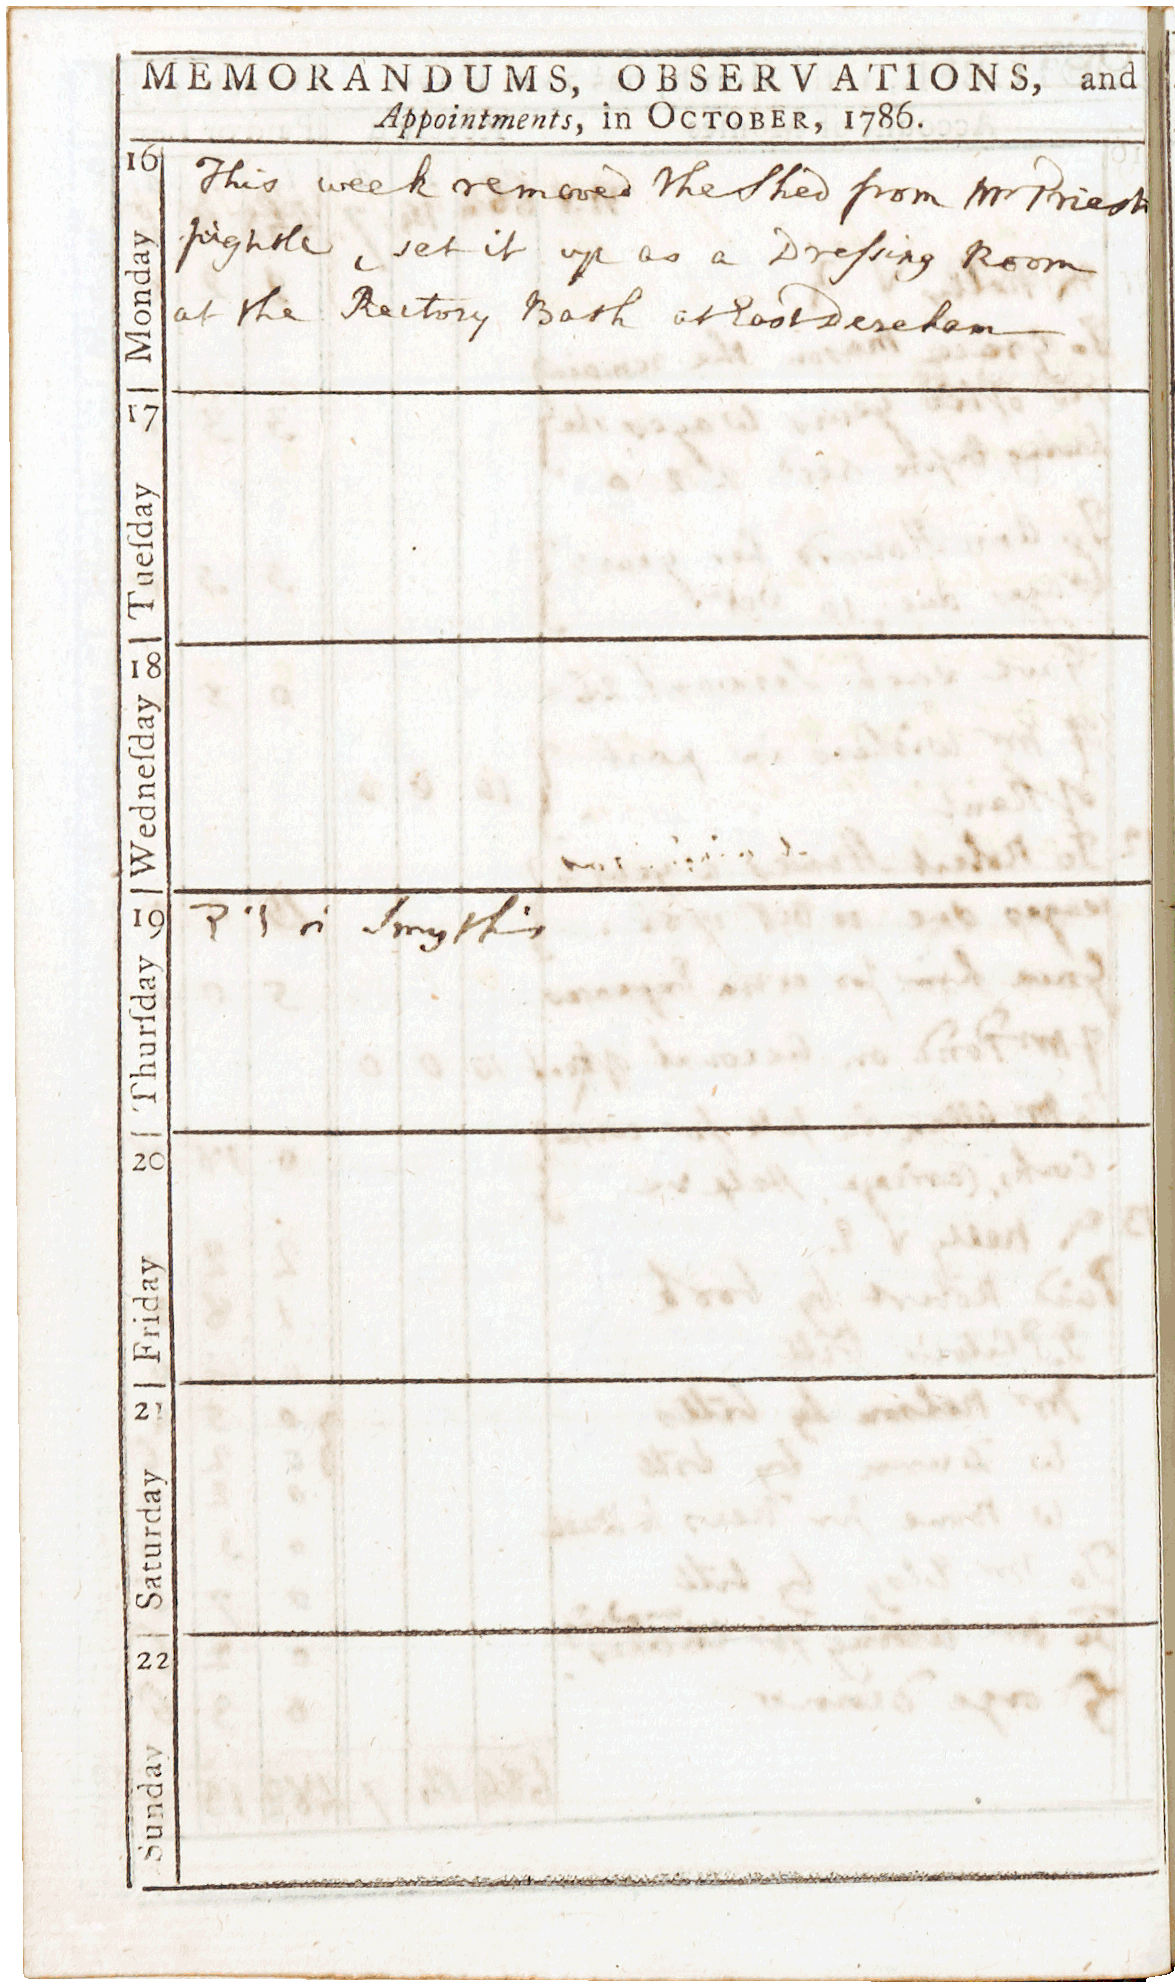 MEMORANDUMS, OBSERVATIONS, and
Appointments, in OCTOBER, 1786.
16 Monday
This week removed the Shed from Mr Priest
pightle, set it up as a Dreſsing Room
at the Rectory Bath at East Dereham
17 Tueſday
18 Wedneſday
19 Thurſday
Smythis
20 Friday
21 Saturday
22 Sunday